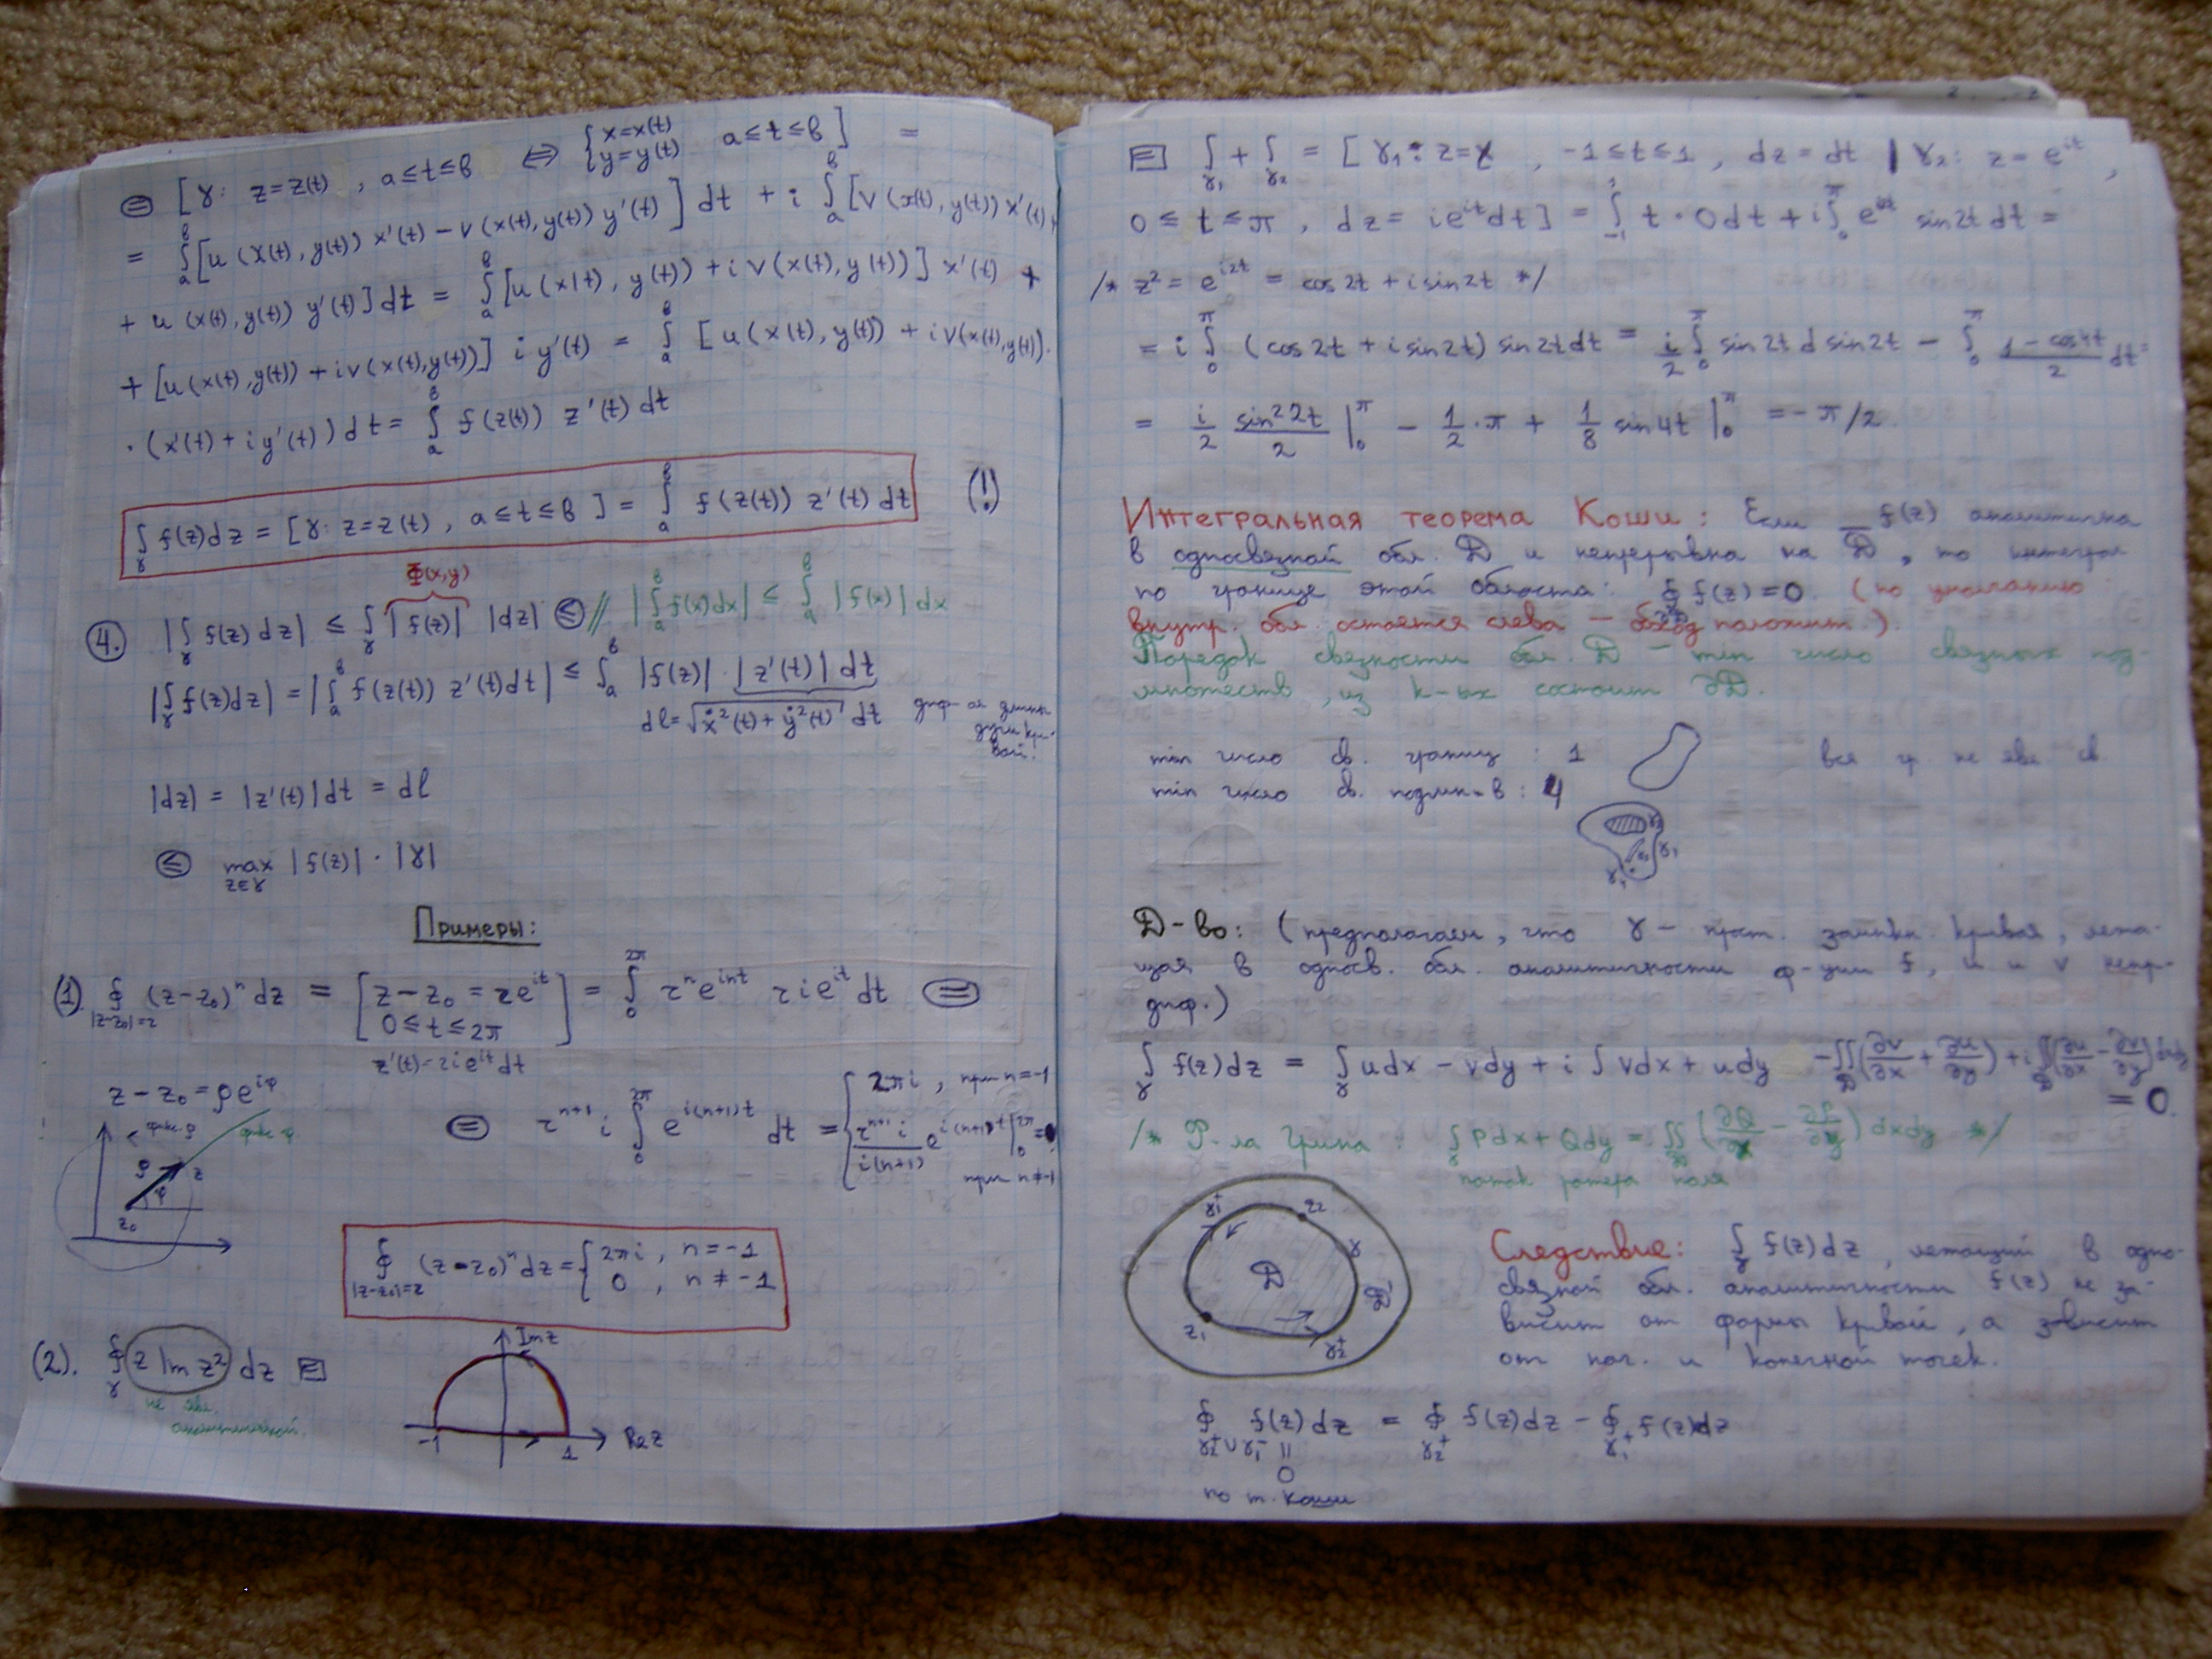 ⊜ [γ: z=z(t), a≤t≤b ⇔ {x=x(t) y=y(t) a≤t≤b] =
= ∫ₐᵇ[u(x(t),y(t)) x'(t) − v(x(t),y(t)) y'(t)] dt + i ∫ₐᵇ[v(x(t),y(t)) x'(t) +
+ u(x(t),y(t)) y'(t)] dt = ∫ₐᵇ[u(x(t),y(t)) + i v(x(t),y(t))] x'(t) +
+ [u(x(t),y(t)) + i v(x(t),y(t))] i y'(t) = ∫ₐᵇ [u(x(t),y(t)) + i v(x(t),y(t))].
· (x'(t) + i y'(t)) dt = ∫ₐᵇ f(z(t)) z'(t) dt
∫_γ f(z)dz = [γ: z=z(t), a≤t≤b] = ∫ₐᵇ f(z(t)) z'(t) dt (!)
Φ(x,y)
4. |∫_γ f(z) dz| ≤ ∫_γ |f(z)| |dz| ≤ // |∫ₐᵇ f(x)dx| ≤ ∫ₐᵇ |f(x)| dx
|∫_γ f(z)dz| = |∫ₐᵇ f(z(t)) z'(t)dt| ≤ ∫ₐᵇ |f(z)| · |z'(t)| dt
dl = √(ẋ²(t) + ẏ²(t)) dt диф-ал длины
дуги кри-
вой!
|dz| = |z'(t)|dt = dl
≤ max_{z∈γ} |f(z)| · |γ|
Примеры:
(1). ∮_{|z−z₀|=r} (z−z₀)ⁿ dz = [z−z₀ = re^{it} 0≤t≤2π] = ∫₀^{2π} rⁿe^{int} r i e^{it} dt ⊜
z'(t)=rie^{it}dt
z−z₀ = ρe^{iφ}
фикс ρ фикс φ
ρ z φ z₀
⊜ r^{n+1} i ∫₀^{2π} e^{i(n+1)t} dt = {2πi, при n=−1
r^{n+1} i / i(n+1) e^{i(n+1)t}|₀^{2π} = 0
при n≠−1
∮_{|z−z₀|=r} (z−z₀)ⁿdz = {2πi, n=−1
0, n≠−1
(2). ∮_γ (z Im z²) dz ⊟
не явл.
аналитической.
Im z
−1 1 Re z
⊟ ∫_{γ₁} + ∫_{γ₂} = [γ₁: z=t, −1≤t≤1, dz=dt | γ₂: z=e^{it},
0≤t≤π, dz=ie^{it}dt] = ∫₋₁¹ t·0dt + i∫₀^π e^{i2t} sin2t dt =
/* z² = e^{i2t} = cos2t + i sin2t */
= i ∫₀^π (cos2t + i sin2t) sin2t dt = i/2 ∫₀^π sin2t d sin2t − ∫₀^π (1−cos4t)/2 dt =
= i/2 sin²2t/2 |₀^π − 1/2·π + 1/8 sin4t |₀^π = −π/2.
Интегральная теорема Коши: Если f(z) аналитична
в односвязной обл. D и непрерывна на D̄, то интеграл
по границе этой области: ∮_{∂D} f(z)=0. (по умолчанию
внутр. обл. остается слева — обход положит.)
Порядок связности обл. D — min число связных под-
множеств, из к-ых состоит ∂D.
min число св. границ : 1 вся гр. не явл св.
min число св. подмн-в : 4
γ₃ γ₂ γ₁ γ₄
Д-во: (предполагаем, что γ — прост. замкн. кривая, лежа-
щая в односв. обл. аналитичности ф-ции f, u и v непр-
диф.)
∫_γ f(z)dz = ∫_γ udx − vdy + i∫vdx + udy −∬_D(∂v/∂x + ∂u/∂y) + i∬_D(∂u/∂x − ∂v/∂y)dxdy
= 0.
/* Ф-ла Грина: ∫_γ Pdx + Qdy = ∬_D (∂Q/∂x − ∂P/∂y) dxdy */
поток ротора поля
γ₁⁺ z₂ γ D D' z₁ γ₂⁺
Следствие: ∫_γ f(z)dz, лежащий в одно-
связной обл. аналитичности f(z) не за-
висит от формы кривой, а зависит
от нач. и конечной точек.
∮_{γ₂⁺∪γ₁⁻} f(z)dz = ∮_{γ₂⁺} f(z)dz − ∮_{γ₁⁺} f(z)dz
||
0
по т. Коши